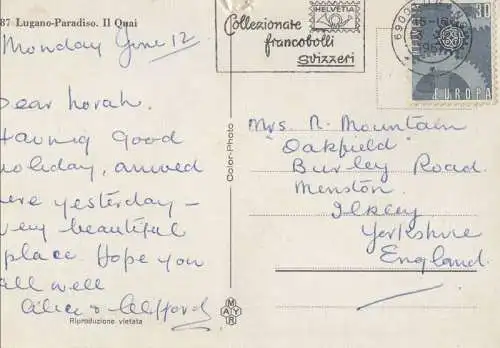 87 Lugano-Paradiso. Il Quai
Monday June 12
Dear Norah.
Having Good
holiday, arrived
here yesterday -
very beautiful
place. Hope you
all well
Alice & Clifford
Riproduzione vietata
Color-Photo
MAYR
Collezionate
francobolli
svizzeri
HELVETIA
6900
30
EUROPA
Mrs. N. Mountain
"Oakfield"
Burley Road.
Menston.
Ilkley
Yorkshire
England.